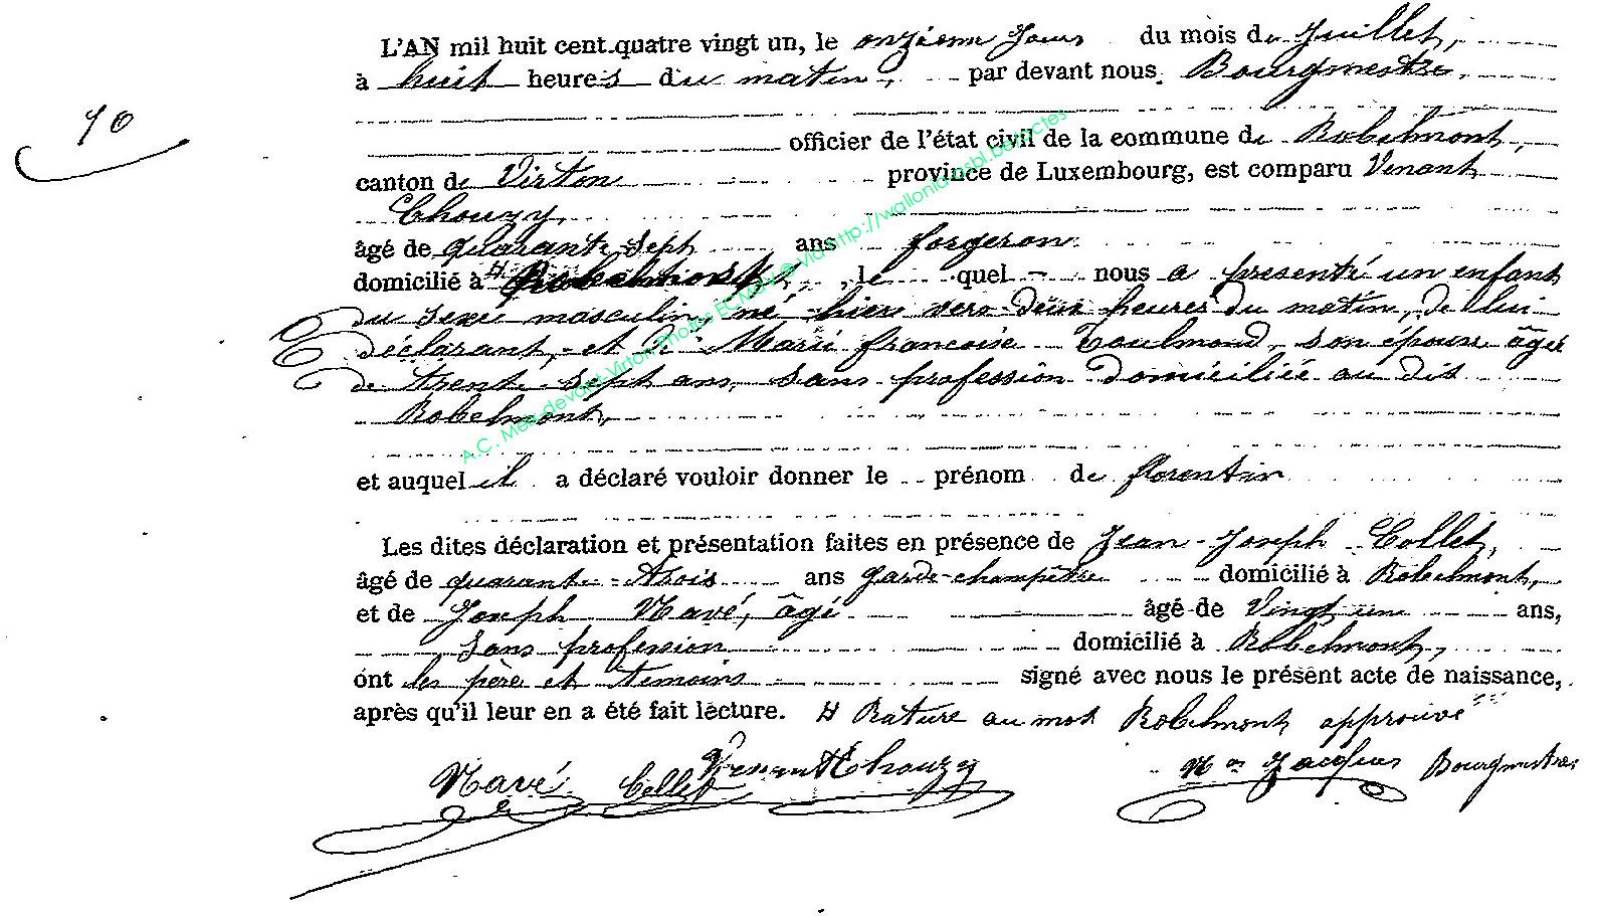 L'AN mil huit cent quatre vingt un, le onzième jour du mois de Juillet,
à huit heures du matin, par devant nous Bourgmestre,
10
officier de l'état civil de la commune de Robelmont,
canton de Virton province de Luxembourg, est comparu Venant
Chouzy,
âgé de quarante-sept ans forgeron
domicilié à # Robelmont, le quel nous a presenté un enfant
du sexe masculin, né hier vers deux heures du matin, de lui
déclarant, et de Marie françoise Toulmond, son épouse âgée
de trente-sept ans, sans profession domiciliée au dit
Robelmont,
et auquel il a déclaré vouloir donner le prénom de florentin
Les dites déclaration et présentation faites en présence de Jean-Joseph Collet,
âgé de quarante-trois ans garde-champêtre domicilié à Robelmont,
et de Joseph Navé, âgé âgé de Vingt un ans,
sans profession domicilié à Robelmont,
ont les père et témoins signé avec nous le présent acte de naissance,
après qu'il leur en a été fait lecture. # Rature au mot Robelmont approuvé
Navé Collet Venant Chouzy Jacques Bourgmestre